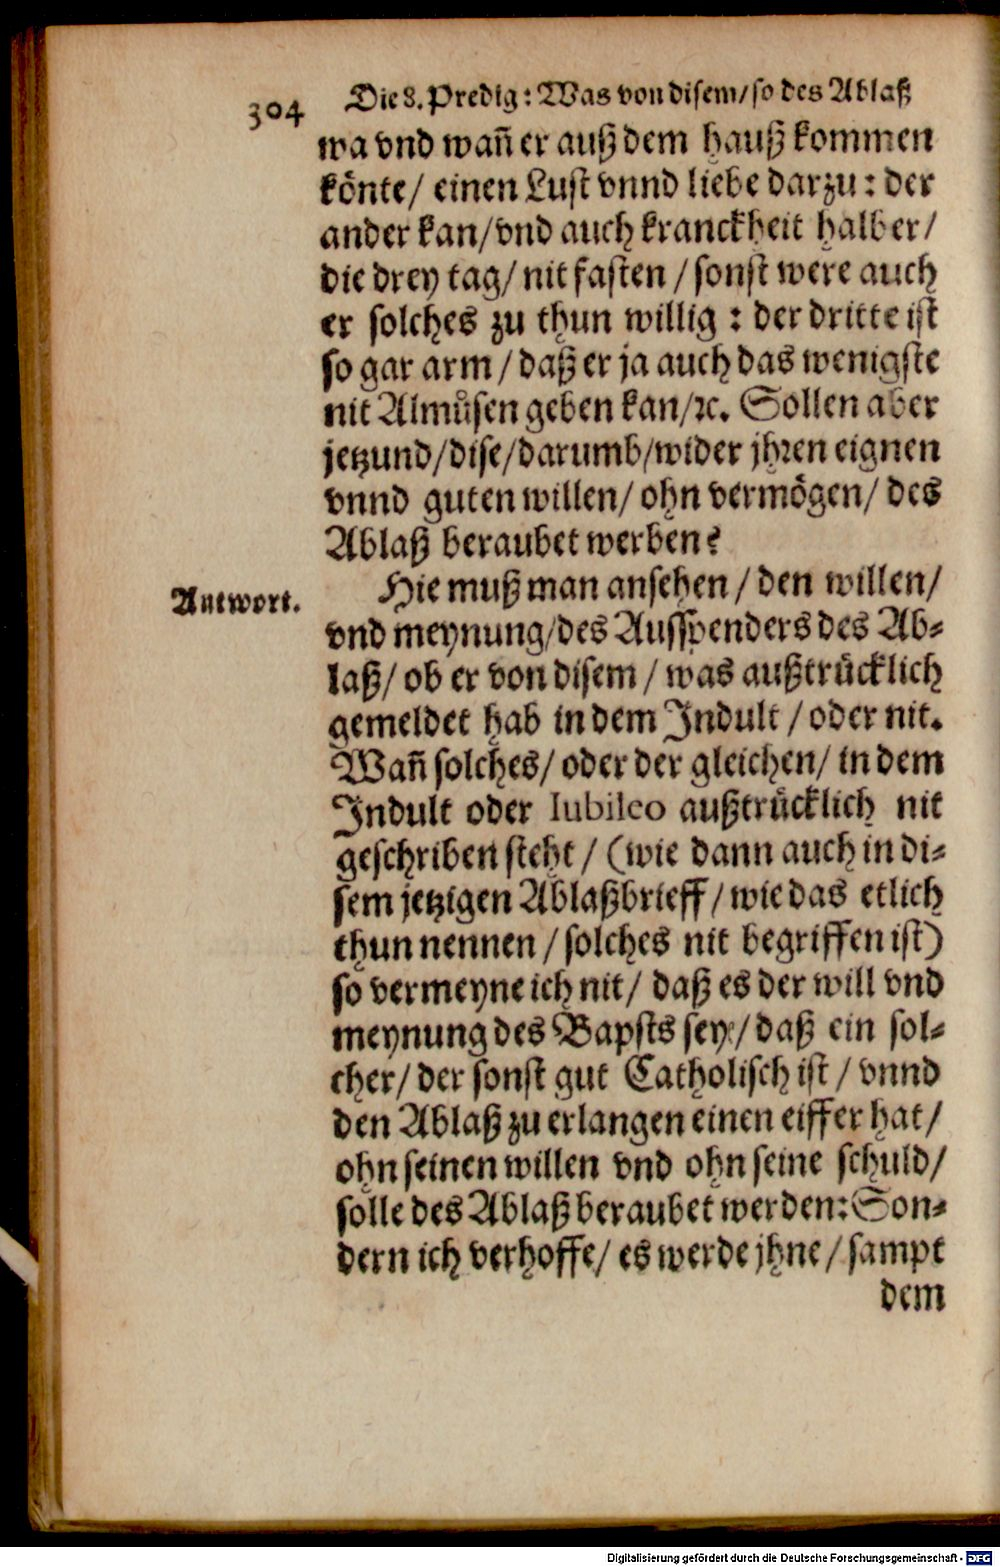 304 Die 8. Predig: Was von disem/ so des Ablaß
wa vnd wañ er auß dem hauß kommen
könte/ einen Lust vnnd liebe darzu: der
ander kan/ vnd auch kranckheit halber/
die drey tag/ nit fasten / sonst were auch
er solches zu thun willig : der dritte ist
so gar arm / daß er ja auch das wenigste
nit Almůsen geben kan/ ꝛc. Sollen aber
jetzund/ dise/ darumb/ wider jhren eignen
vnnd guten willen/ ohn vermögen/ des
Ablaß beraubet werben?
Antwort.
Hie muß man ansehen / den willen/
vnd meynung/ des Ausspenders des Ab-
laß/ ob er von disem / was außtrücklich
gemeldet hab in dem Indult / oder nit.
Wañ solches/ oder der gleichen/ in dem
Indult oder Iubileo außtrücklich nit
geschriben steht / (wie dann auch in di-
sem jetzigen Ablaßbrieff / wie das etlich
thun nennen / solches nit begriffen ist)
so vermeyne ich nit/ daß es der will vnd
meynung des Bapsts sey/ daß ein sol-
cher/ der sonst gut Catholisch ist / vnnd
den Ablaß zu erlangen einen eiffer hat/
ohn seinen willen vnd ohn seine schuld/
solle des Ablaß beraubet werden: Son-
dern ich verhoffe/ es werde jhne / sampt
dem
Digitalisierung gefördert durch die Deutsche Forschungsgemeinschaft - DFG